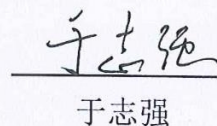 于志强
于志强